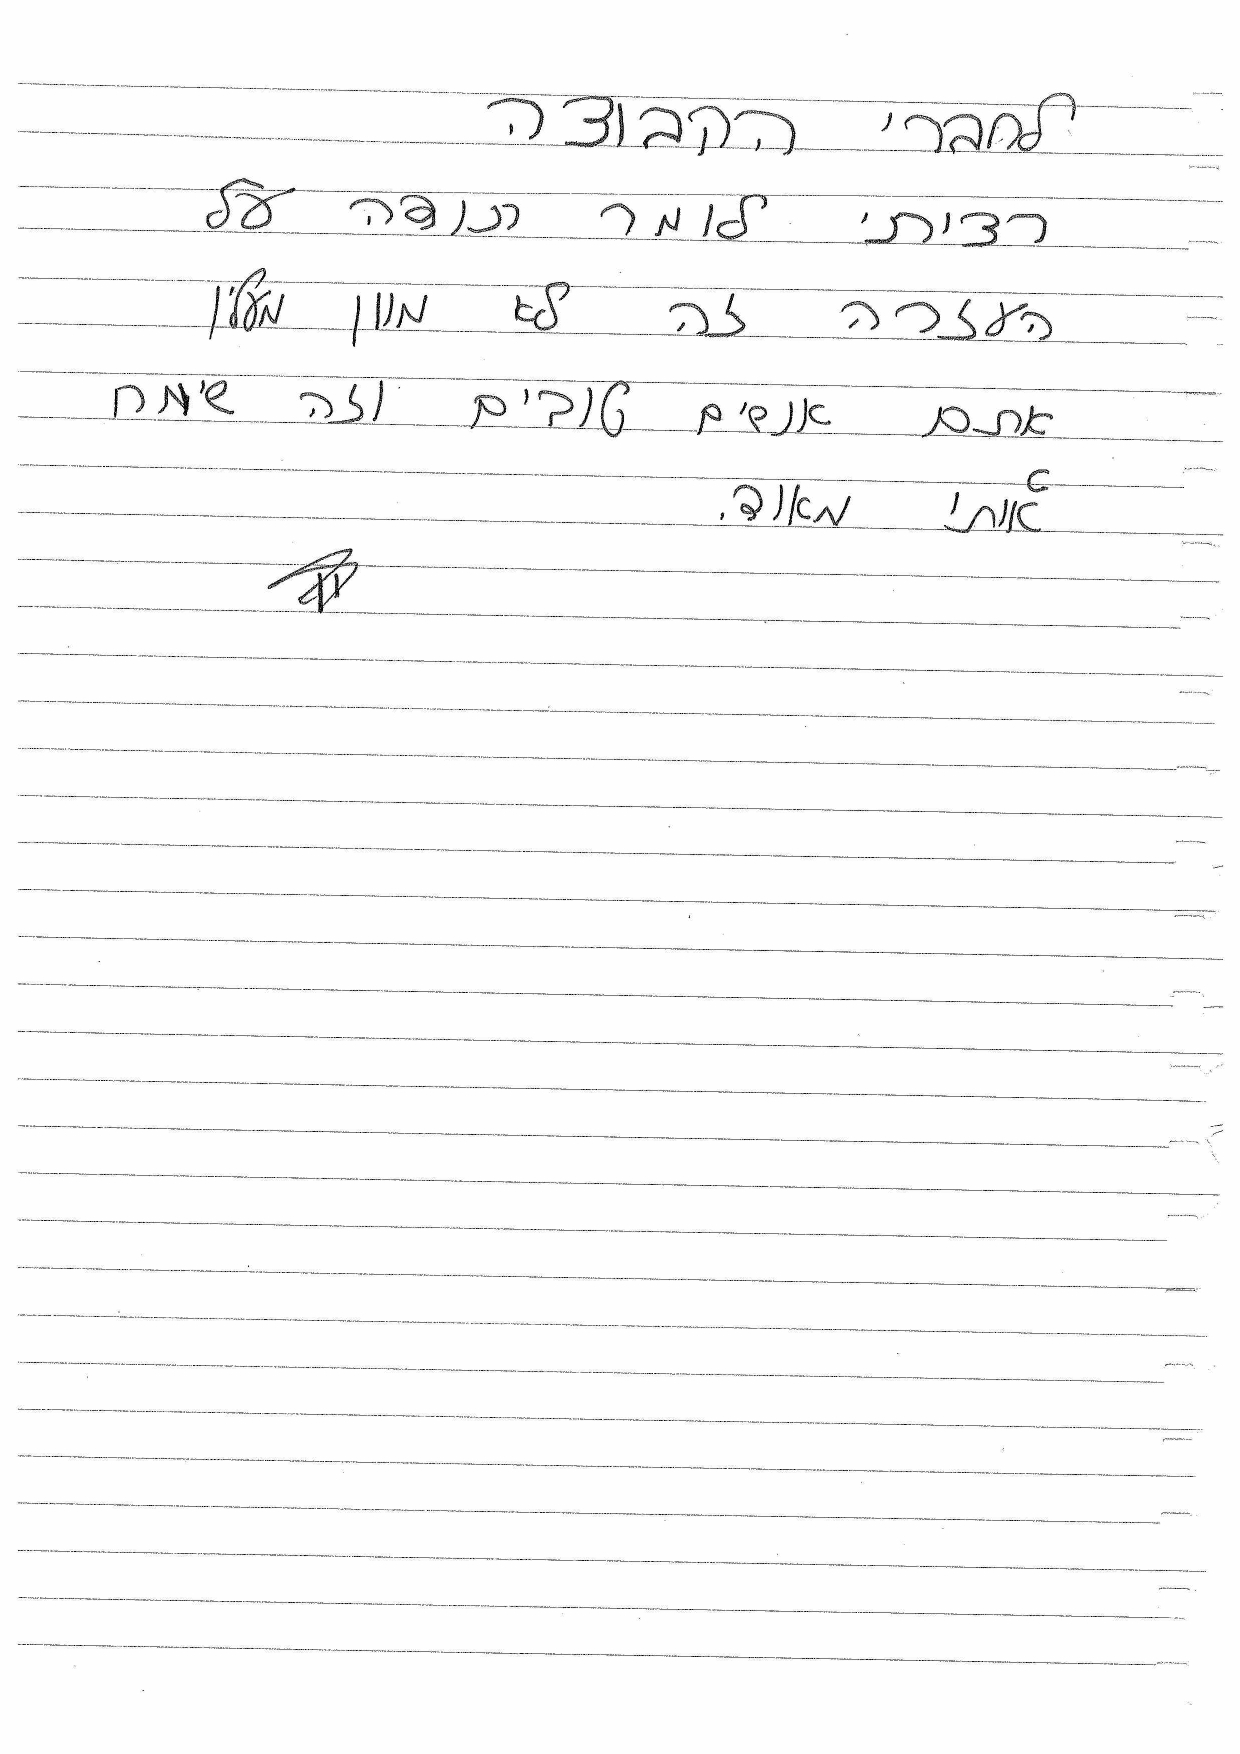 לחברי הקבוצה
רציתי לומר תודה על
העזרה זה לא מובן מאליו
אתם אנשים טובים וזה שימח
אותי מאוד.